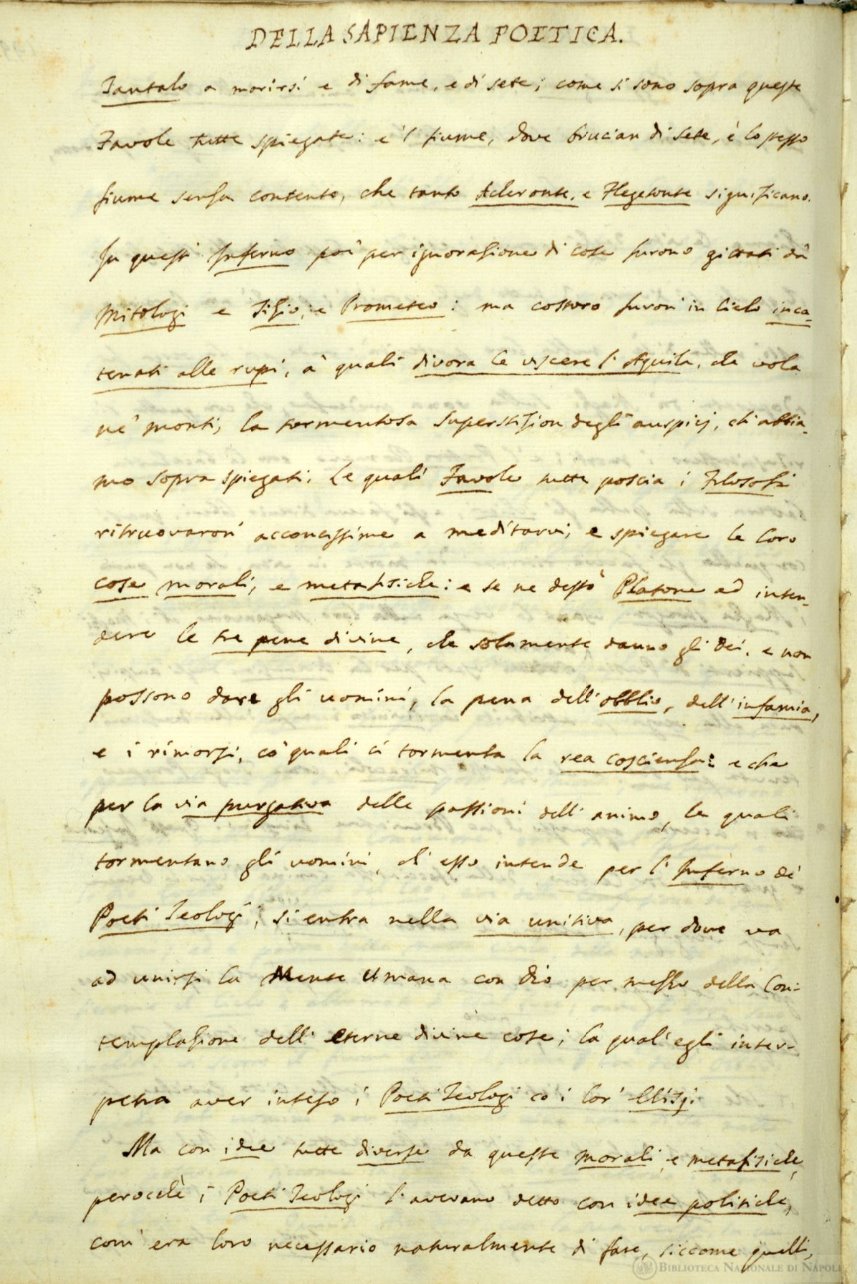 DELLA SAPIENZA POETICA.
Tantalo a morirsi e di fame, e di sete; come si sono sopra queste
Favole tutte spiegate: e 'l fiume, dove brucian di sete, è lo stesso
fiume senza contento, che tanto Acheronte, e Flegetonte significano.
In questi Inferno poi per ignorazione di cose furono gittati da'
Mitologi e Tizio, e Prometeo: ma costoro furon' in Cielo inca-
tenati alle rupi, a' quali divora le viscere l'Aquila, che vola
ne' monti; la tormentosa Superstizion degli auspicj, ch'abbia-
mo sopra spiegati. Le quali Favole tutte poscia i Filosofi
ritruovaron' acconcissime a meditarvi, e spiegare le loro
cose morali, e metafisiche: e se ne destò Platone ad inten-
dere le tre pene divine, che solamente danno gli Dei, e non
possono dare gli uomini, la pena dell'obblio, dell'infamia,
e i rimorsi, co' quali ci tormenta la rea coscienza: e che
per la via purgativa delle passioni dell'animo, le quali
tormentano gli uomini, ch'esso intende per l'Inferno de'
Poeti Teologi, si entra nella via unitiva, per dove va
ad unirsi la Mente Umana con Dio per mezzo della Con-
templazione dell'eterne divine cose; la qual'egli inter-
petra aver inteso i Poeti Teologi co i lor' Elisj.
Ma con idee tutte diverse da queste morali, e metafisiche,
perocchè i Poeti Teologi l'avevano detto con idee politiche,
com'era loro necessario naturalmente di fare, siccome quelli,
BIBLIOTECA NAZIONALE DI NAPOLI